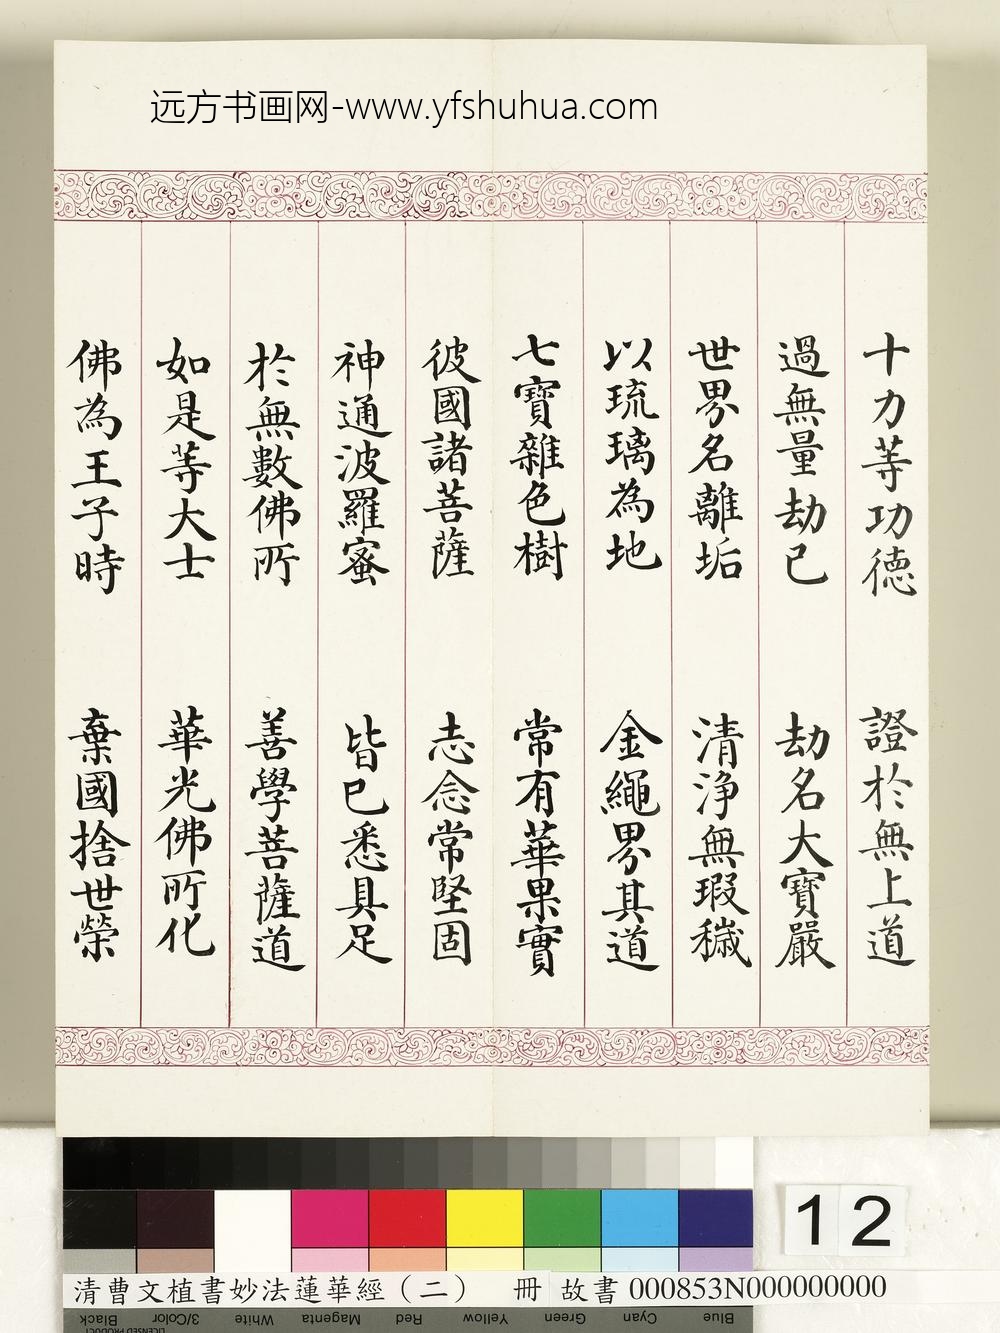 远方书画网-www.yfshuhua.com
十力等功德 證於無上道
過無量劫已 劫名大寶嚴
世界名離垢 清淨無瑕穢
以琉璃為地 金繩界其道
七寶雜色樹 常有華果實
彼國諸菩薩 志念常堅固
神通波羅蜜 皆已悉具足
於無數佛所 善學菩薩道
如是等大士 華光佛所化
佛為王子時 棄國捨世榮
12
清曹文植書妙法蓮華經（二） 冊 故書 000853N000000000
Black 3/Color White Magenta Red Yellow Green Cyan Blue
LICENSED PRODUCT